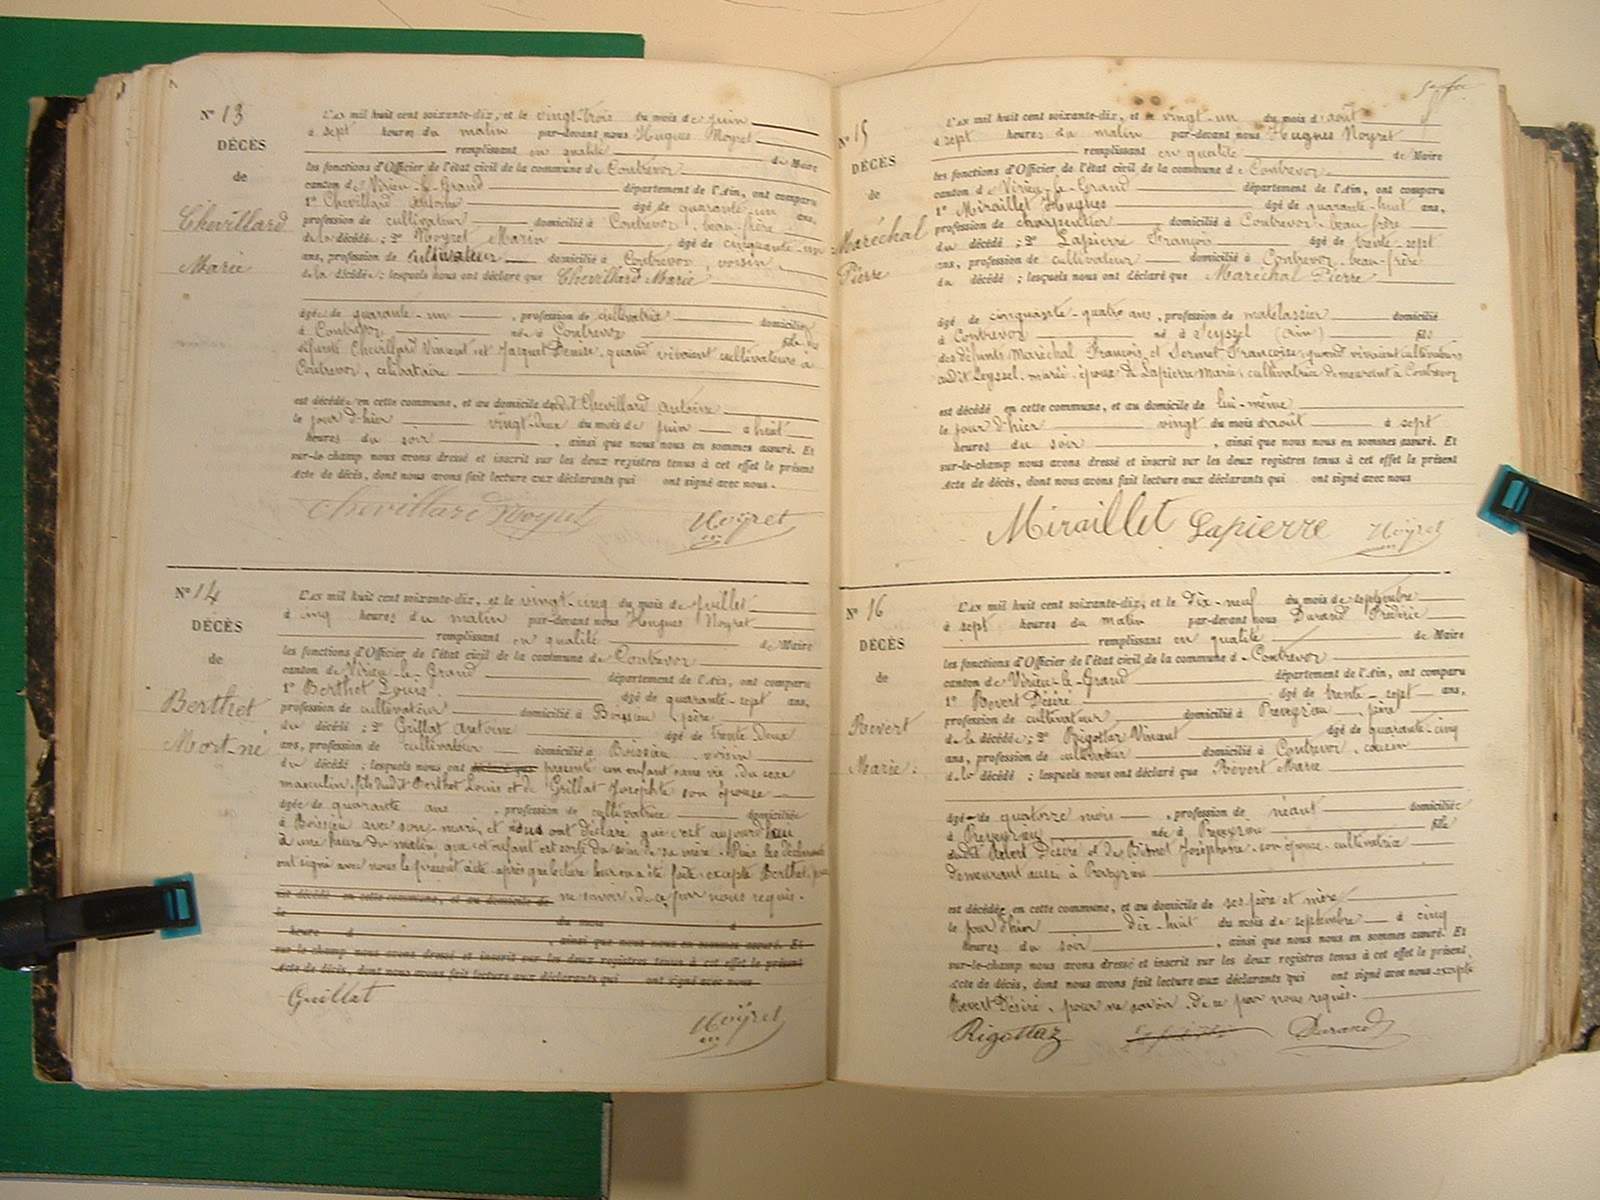 N° 13
DÉCÈS
de
Chevillard
Marie
L'AN mil huit cent soixante-dix, et le vingt-trois du mois de juin
à sept heures du matin par-devant nous Hugues Noyret
remplissant en qualité de Maire
les fonctions d'Officier de l'état civil de la commune de Contrevoz
canton de Virieu-le-Grand département de l'Ain, ont comparu
1° Chevillard Antoine âgé de quarante-un ans,
profession de cultivateur domicilié à Contrevoz, beau-frère
de la décédée ; 2° Noyret Marin âgé de cinquante-un
ans, profession de cultivateur domicilié à Contrevoz, voisin
de la décédée ; lesquels nous ont déclaré que Chevillard Marie
âgée de quarante-un , profession de cultivatrice domiciliée
à Contrevoz née à Contrevoz fille des
défunts Chevillard Vincent et Jacquet Denise, quand vivaient cultivateurs à
Contrevoz, célibataire
est décédée en cette commune, et au domicile dudit Chevillard Antoine
le jour d'hier vingt-deux du mois de juin à huit
heures du soir , ainsi que nous nous en sommes assuré. Et
sur-le-champ nous avons dressé et inscrit sur les deux registres tenus à cet effet le présent
acte de décès, dont nous avons fait lecture aux déclarants qui ont signé avec nous.
Chevillard Noyret Noyret
N° 14
DÉCÈS
de
Berthet
Mort-né
L'AN mil huit cent soixante-dix, et le vingt-cinq du mois de juillet
à cinq heures du matin par-devant nous Hugues Noyret
remplissant en qualité de Maire
les fonctions d'Officier de l'état civil de la commune de Contrevoz
canton de Virieu-le-Grand département de l'Ain, ont comparu
1° Berthet Louis âgé de quarante-sept ans,
profession de cultivateur domicilié à Boissieu père
du décédé ; 2° Grillat Antoine âgé de trente deux
ans, profession de cultivateur domicilié à Boissieu voisin
du décédé ; lesquels nous ont déclaré que présenté un enfant sans vie, du sexe
masculin, fils dudit Berthet Louis et de Grillat Josephte son épouse
âgée de quarante ans , profession de cultivatrice domiciliée
à Boissieu avec son mari, et nous ont déclaré que c'est aujourd'hui
à une heure du matin que cet enfant est sorti du sein de sa mère. Puis les déclarants
ont signé avec nous le présent acte après que lecture leur en a été faite, excepté Berthet, pour
est décédé en cette commune, et au domicile de ne savoir, de ce par nous requis.
le du mois à
heure d , ainsi que nous nous en sommes assuré. Et
sur-le-champ nous avons dressé et inscrit sur les deux registres tenus à cet effet le présent
acte de décès, dont nous avons fait lecture aux déclarants qui ont signé avec nous
Grillat
Noyret
N° 15
DÉCÈS
de
Maréchal
Pierre
L'AN mil huit cent soixante-dix, et le vingt-un du mois d'août
à sept heures du matin par-devant nous Hugues Noyret
remplissant en qualité de Maire
les fonctions d'Officier de l'état civil de la commune de Contrevoz
canton de Virieu-le-Grand département de l'Ain, ont comparu
1° Miraillet Hugues âgé de quarante-huit ans,
profession de charpentier domicilié à Contrevoz beau-frère
du décédé ; 2° Lapierre François âgé de trente-sept
ans, profession de cultivateur domicilié à Contrevoz, beau-frère
du décédé ; lesquels nous ont déclaré que Maréchal Pierre
âgé de cinquante-quatre ans, profession de matelassier domicilié
à Contrevoz né à Seyssel (Ain) fils
des défunts Maréchal François et Sermet Françoise, quand vivaient cultivateurs
audit Seyssel, marié, époux de Lapierre Marie, cultivatrice demeurant à Contrevoz
est décédé en cette commune, et au domicile de lui-même
le jour d'hier vingt du mois d'août à sept
heures du soir , ainsi que nous nous en sommes assuré. Et
sur-le-champ nous avons dressé et inscrit sur les deux registres tenus à cet effet le présent
acte de décès, dont nous avons fait lecture aux déclarants qui ont signé avec nous
Miraillet Lapierre Noyret
N° 16
DÉCÈS
de
Revert
Marie.
L'AN mil huit cent soixante-dix, et le dix-neuf du mois de septembre
à sept heures du matin par-devant nous Durand Frédéric
remplissant en qualité de Maire
les fonctions d'Officier de l'état civil de la commune de Contrevoz
canton de Virieu-le-Grand département de l'Ain, ont comparu
1° Revert Désiré âgé de trente-sept ans,
profession de cultivateur domicilié à Preveyzieu père
de la décédée ; 2° Rigottaz Vincent âgé de quarante-cinq
ans, profession de cultivateur domicilié à Contrevoz, cousin
de la décédée ; lesquels nous ont déclaré que Revert Marie
âgée de quatorze mois , profession de néant domiciliée
à Preveyzieu née à Preveyzieu fille
dudit Revert Désiré et de Josephine, son épouse, cultivatrice
demeurant aussi à Preveyzieu
est décédée en cette commune, et au domicile de ses père et mère
le jour d'hier dix-huit du mois de septembre à cinq
heures du soir , ainsi que nous nous en sommes assuré. Et
sur-le-champ nous avons dressé et inscrit sur les deux registres tenus à cet effet le présent
acte de décès, dont nous avons fait lecture aux déclarants qui ont signé avec nous excepté
Revert Désiré, pour ne savoir, de ce par nous requis.
Rigottaz Durand